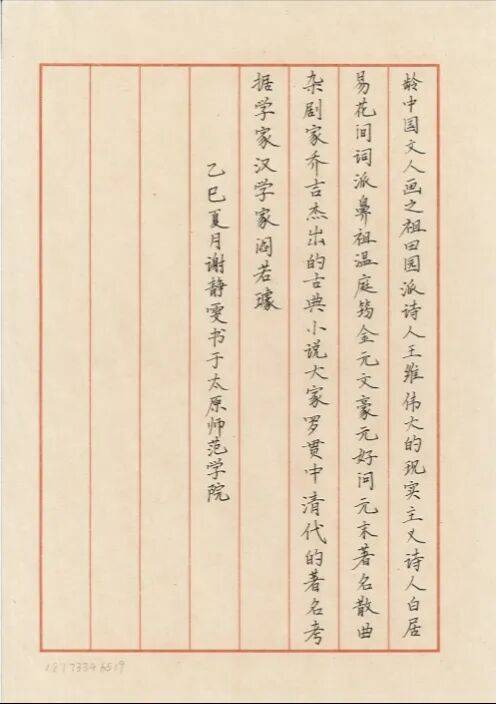 龄中国文人画之祖田园派诗人王维伟大的现实主义诗人白居
易花间词派鼻祖温庭筠金元文豪元好问元末著名散曲
杂剧家乔吉杰出的古典小说大家罗贯中清代的著名考
据学家汉学家阎若璩
乙巳夏月谢静雯书于太原师范学院
18773346519